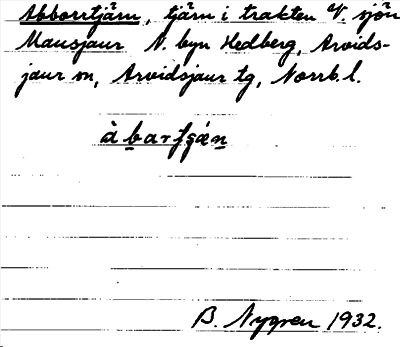 Abborrtjärn, tjärn i trakten V. sjön
Mausjaur N. byn Hedberg, Arvids-
jaur sn, Arvidsjaur tg, Norrb. l.
B. Nygren 1932.